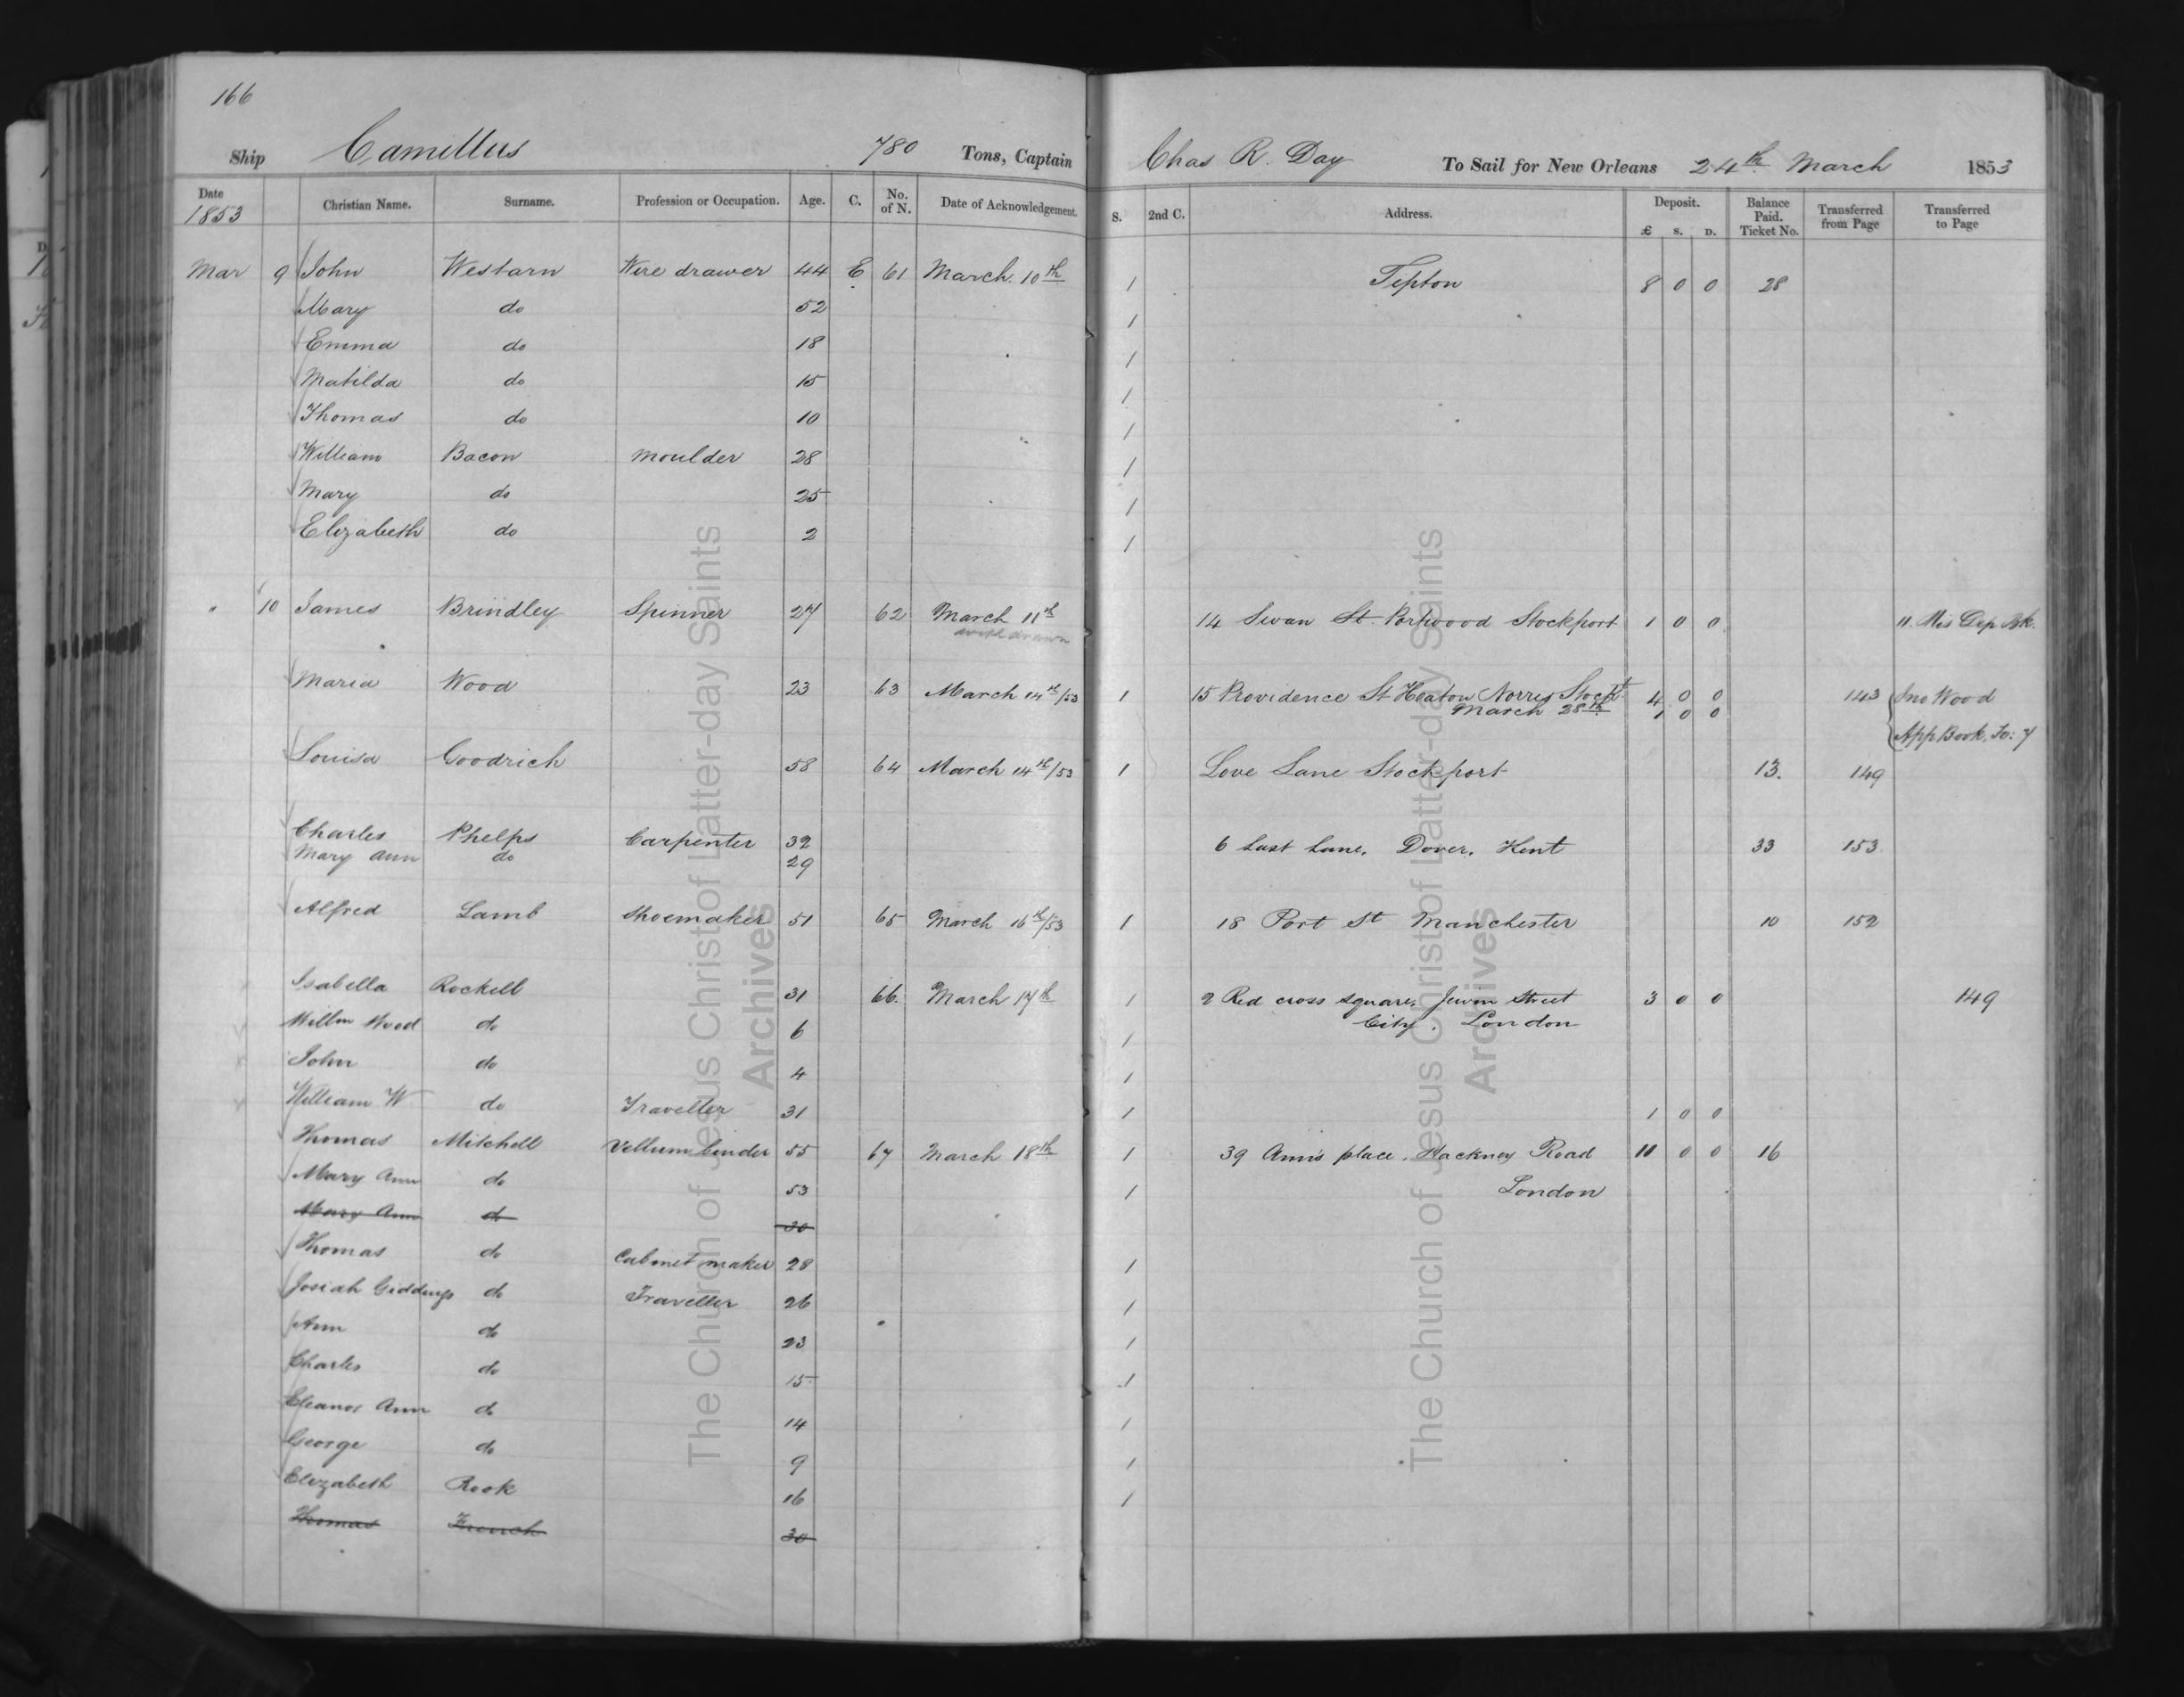 166
Ship Camillus 780 Tons, Captain Chas R. Day To Sail for New Orleans 24th March 1853
Date 1853 Christian Name. Surname. Profession or Occupation. Age. C. No. of N. Date of Acknowledgement. S. 2nd C. Address. Deposit. £ S. D. Balance Paid. Ticket No. Transferred from Page Transferred to Page
Mar 9 John Westarn Wire drawer 44 E 61 March 10th 1 Tipton 8 0 0 28
Mary do 52 1
Emma do 18 1
Matilda do 15 1
Thomas do 10 1
William Bacon Moulder 28 1
Mary do 25 1
Elizabeth do 2 1
" 10 James Brindley Spinner 27 62 March 11th 14 Swan St Portwood Stockport 1 0 0 11. Mis Dep Bk.
withdrawn
Maria Wood 23 63 March 14th/53 1 15 Providence St Heaton Norris Stockpt 4 0 0 143 Jno Wood
March 28th 1 0 0
App Book. Fo: 7
Louisa Goodrich 58 64 March 14th/53 1 Love Lane Stockport 13. 149
Charles Phelps Carpenter 32 6 Last Lane. Dover. Kent 33 153
Mary Ann do 29
Alfred Lamb Shoemaker 51 65 March 16th/53 1 18 Port St Manchester 10 152
Isabella Rockell 31 66. March 17th 1 2 Red cross square, Jewin Street 3 0 0 149
City. London
Willm Wood do 6 1
John do 4 1
William W do Traveller 31 1 1 0 0
Thomas Mitchell Vellum binder 55 67 March 18th 1 39 Ann's place. Hackney Road 10 0 0 16
Mary Ann do 53 1 London
Mary Ann do 30
Thomas do Cabinet maker 28 1
Josiah Giddings do Traveller 26 1
Ann do 23 1
Charles do 15 1
Eleanor Ann do 14 1
George do 9 1
Elizabeth Rook 16 1
Thomas French 30
The Church of Jesus Christ of Latter-day Saints
Archives
The Church of Jesus Christ of Latter-day Saints
Archives